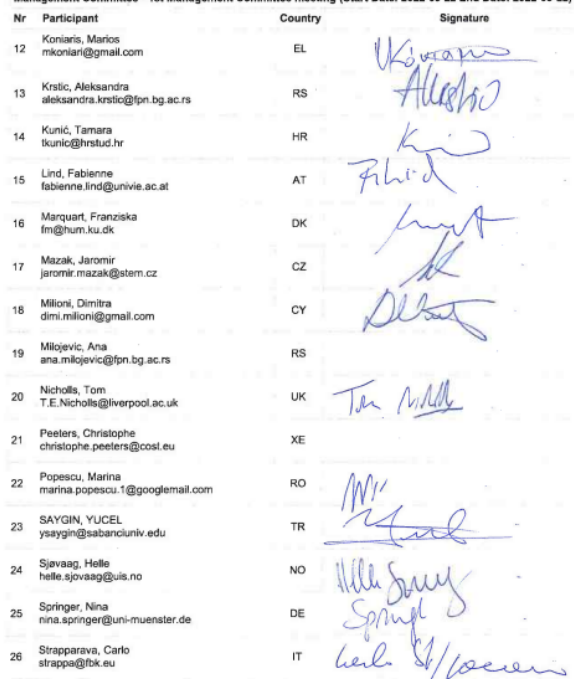 Nr Participant Country Signature
12 Koniaris, Marios EL
mkoniari@gmail.com
13 Krstic, Aleksandra RS
aleksandra.krstic@fpn.bg.ac.rs
14 Kunić, Tamara HR
tkunic@hrstud.hr
15 Lind, Fabienne AT
fabienne.lind@univie.ac.at
16 Marquart, Franziska DK
fm@hum.ku.dk
17 Mazak, Jaromir CZ
jaromir.mazak@stem.cz
18 Milioni, Dimitra CY
dimi.milioni@gmail.com
19 Milojevic, Ana RS
ana.milojevic@fpn.bg.ac.rs
20 Nicholls, Tom UK
T.E.Nicholls@liverpool.ac.uk
21 Peeters, Christophe XE
christophe.peeters@cost.eu
22 Popescu, Marina RO
marina.popescu.1@googlemail.com
23 SAYGIN, YUCEL TR
ysaygin@sabanciuniv.edu
24 Sjøvaag, Helle NO
helle.sjovaag@uis.no
25 Springer, Nina DE
nina.springer@uni-muenster.de
26 Strapparava, Carlo IT
strappa@fbk.eu